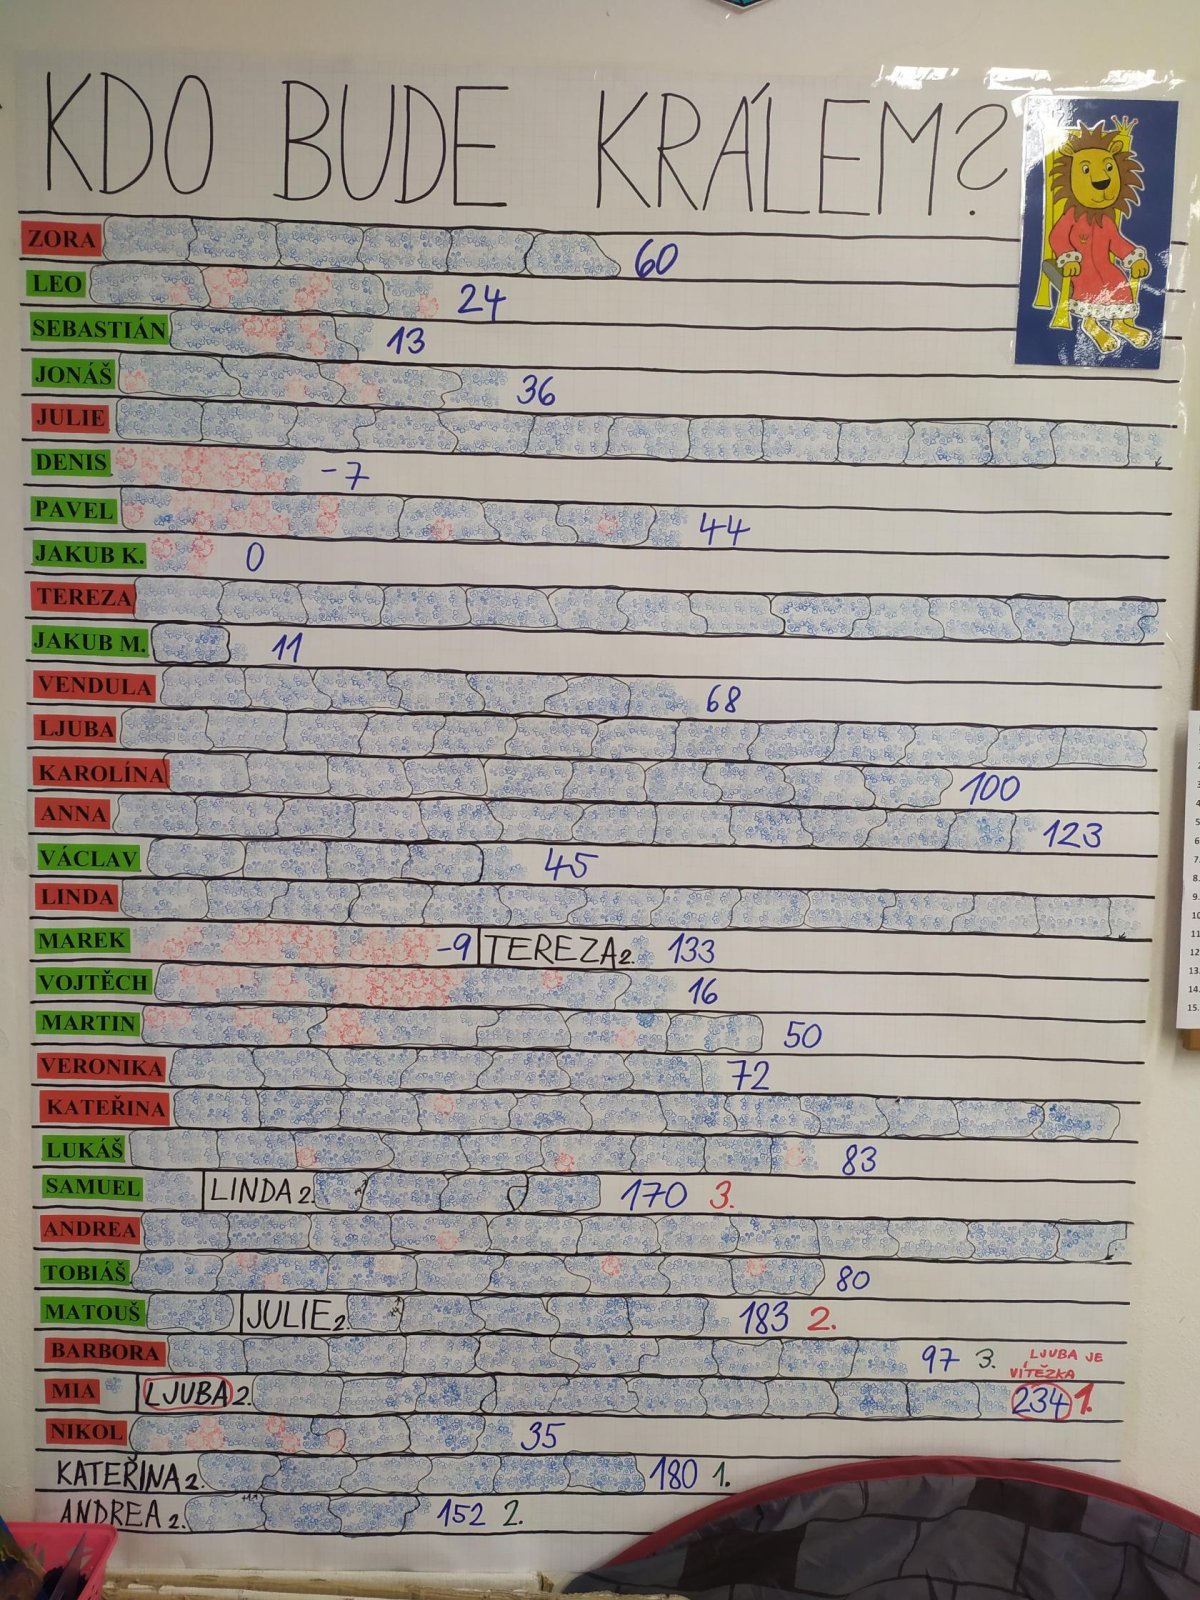 KDO BUDE KRÁLEM?
ZORA 60
LEO 24
SEBASTIÁN 13
JONÁŠ 36
JULIE
DENIS -7
PAVEL 44
JAKUB K. 0
TEREZA
JAKUB M. 11
VENDULA 68
LJUBA
KAROLÍNA 100
ANNA 123
VÁCLAV 45
LINDA
MAREK -9 TEREZA 2. 133
VOJTĚCH 16
MARTIN 50
VERONIKA 72
KATEŘINA
LUKÁŠ 83
SAMUEL LINDA 2. 170 3.
ANDREA
TOBIÁŠ 80
MATOUŠ JULIE 2. 183 2.
BARBORA 97 3.
LJUBA JE
VÍTĚZKA
MIA LJUBA 2. 234 1.
NIKOL 35
KATEŘINA 2. 180 1.
ANDREA 2. 152 2.
4.
5.
6.
7.
8.
9.
10
11
12
13.
14.
15.